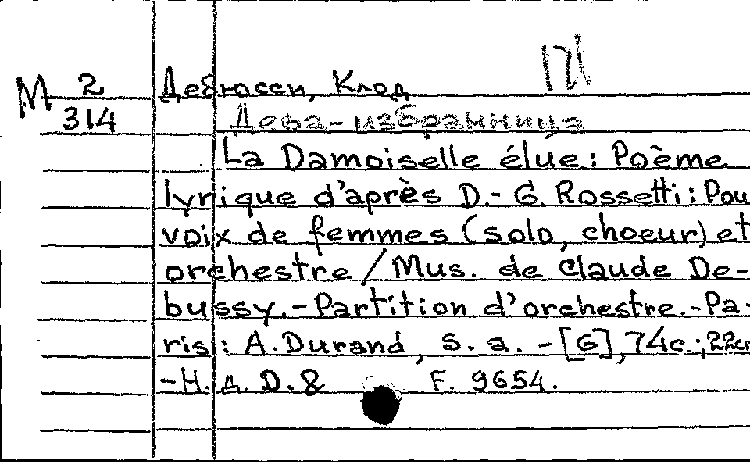 171
М 2 Дебюсси, Клод
314 Дева-избранница
La Damoiselle élue: Poème
lyrique d'après D.-G. Rossetti: Pou
voix de femmes (solo, choeur) et
orchestre / Mus. de Claude De-
bussy.-Partition d'orchestre.-Pa-
ris: A. Durand, s. a. - [6], 74c.; 22см
-Н. д. D. & F. 9654.